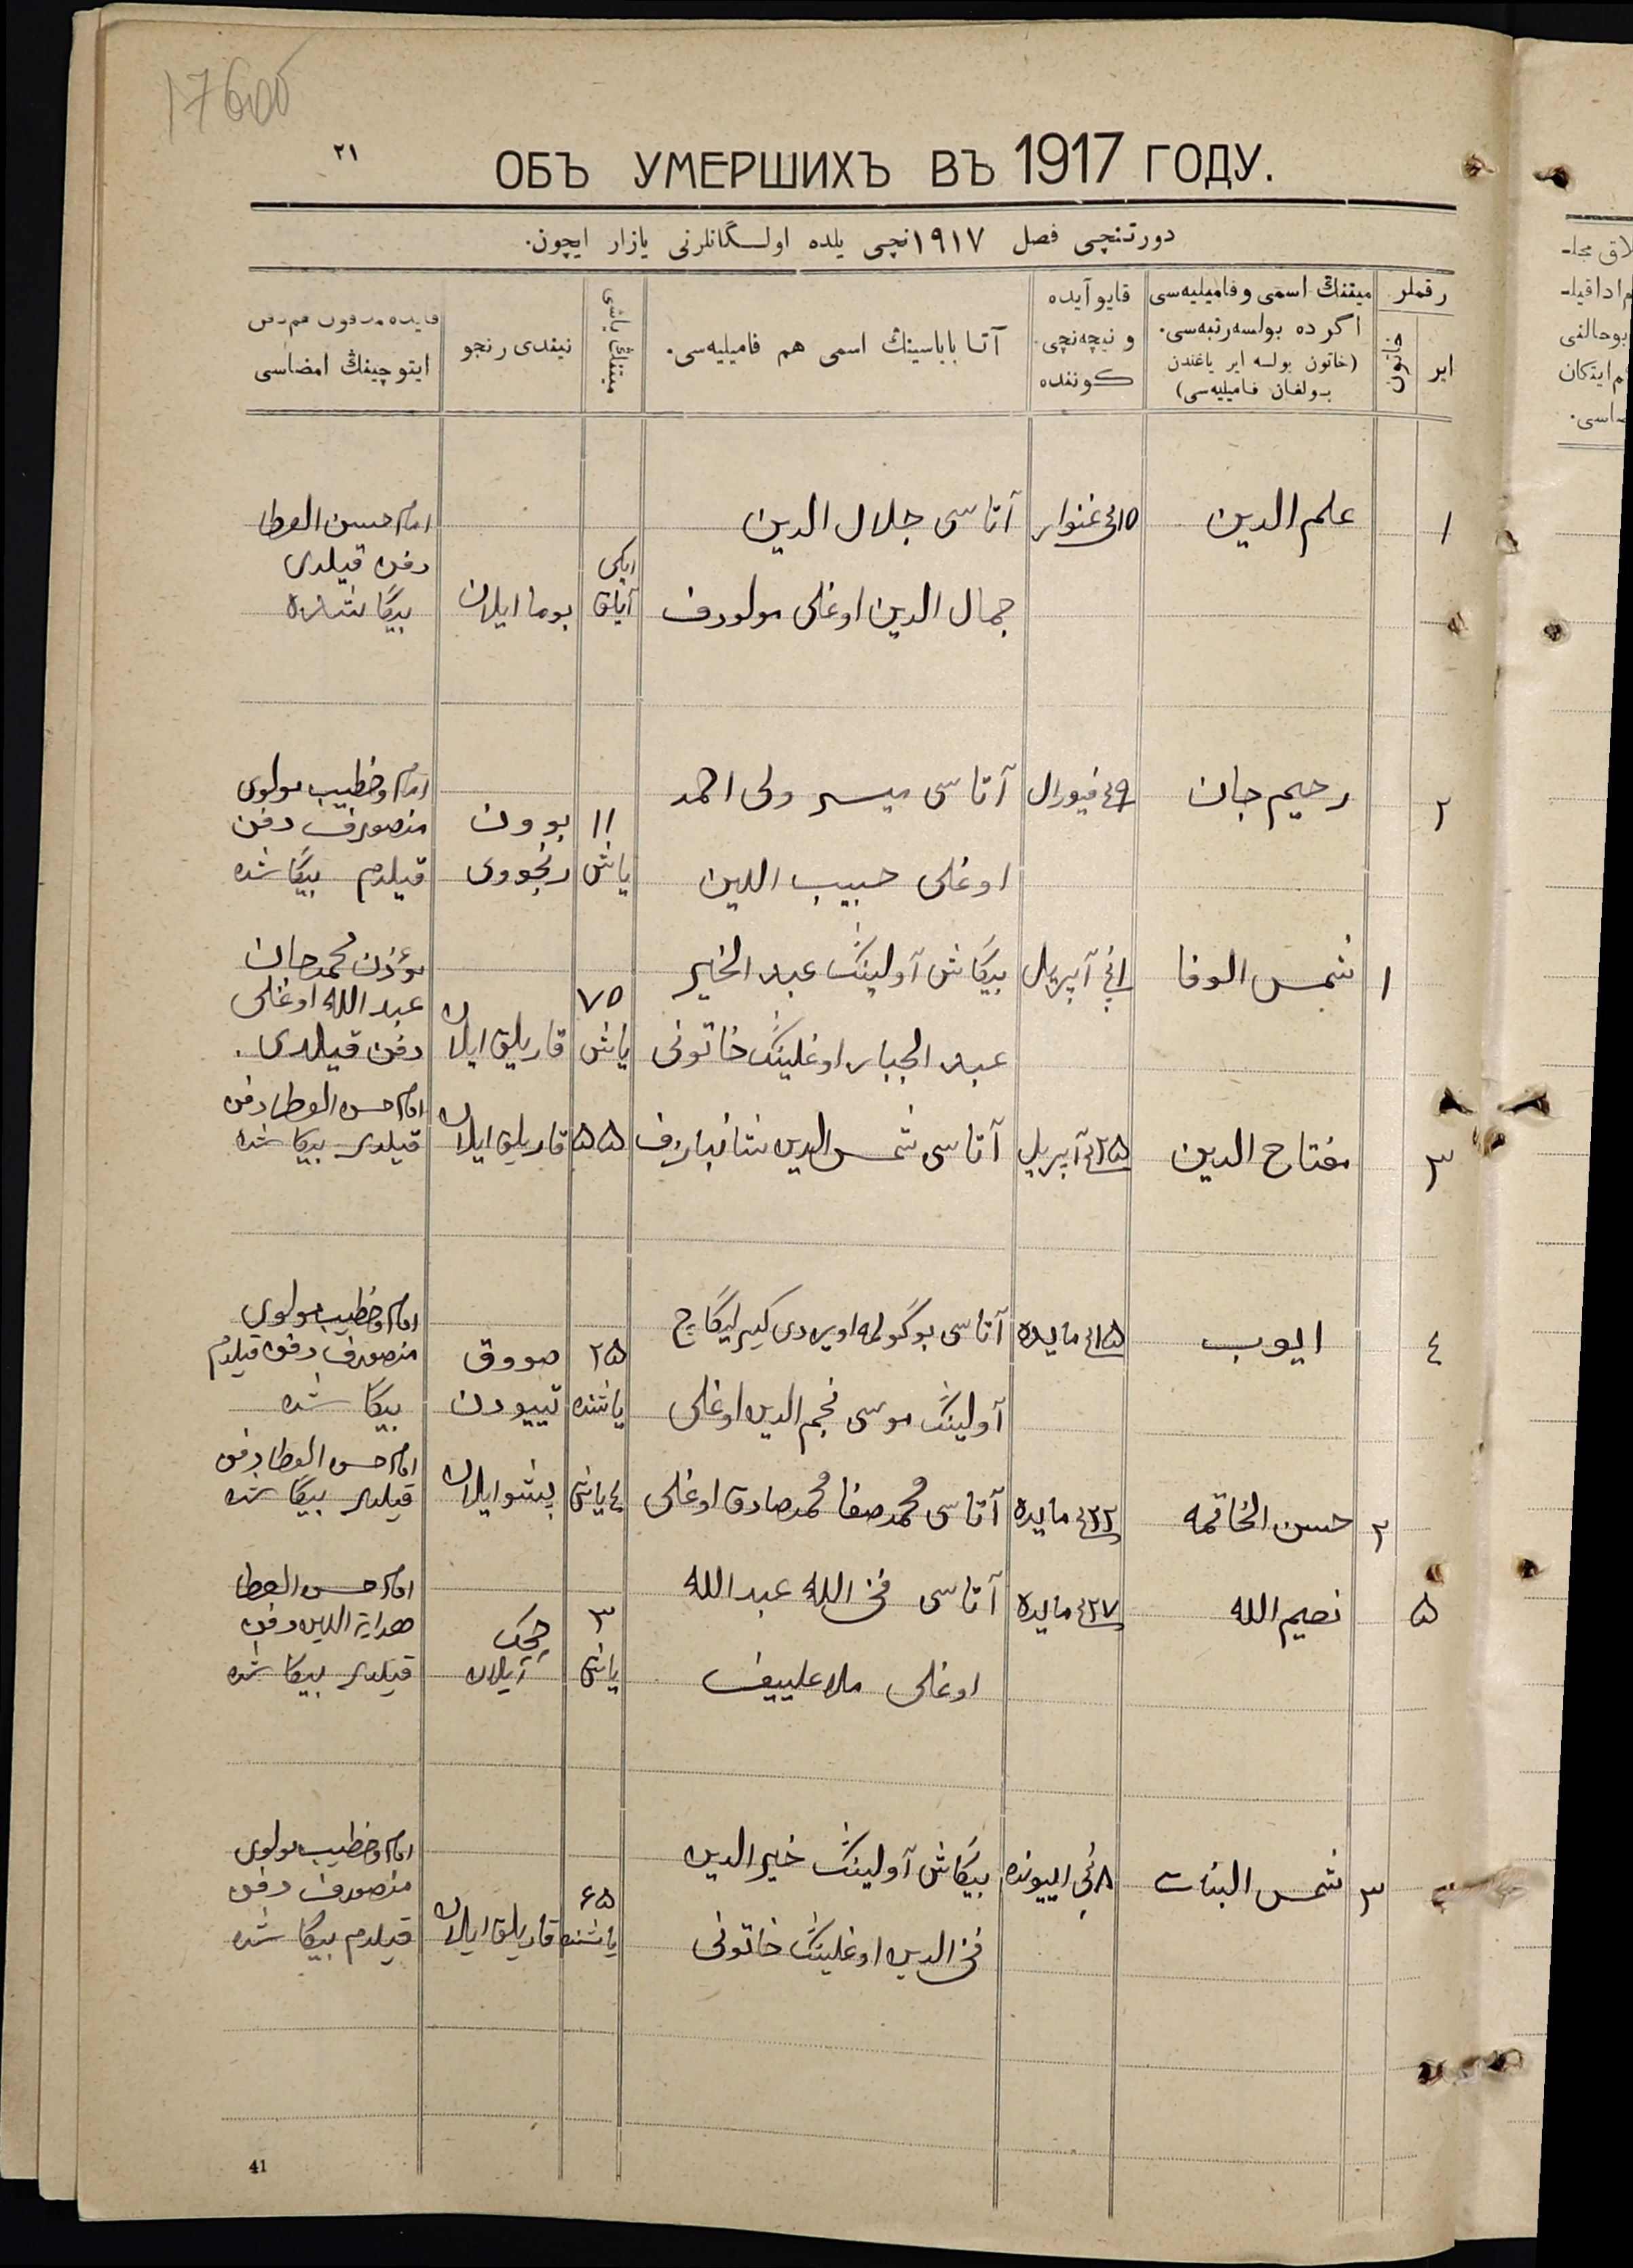 17600
٢١
ОБЪ УМЕРШИХЪ ВЪ 1917 ГОДУ.
دورتنچی فصل ١٩١٧نچی یلده اولـگانلرنی یازار ایچون.
رقملر
ایر
خاتون
میتنڭ اسمی و فامیلیه‌سی
اگر ده بولسه رتبه‌سی.
(خاتون بولسه ایر یاغندن
بـولغان فـامیلیه‌سی)
قایو آیده
و نیچه‌نچی.
کوننده
آتـا باباسینڭ اسمی هم فامیلیه‌سی.
میتنڭ یاشی
نیندی رنجو
قایده مدفون هم دفن
ایتوچینڭ امضاسی
١
علم الدین
١٥نچی غنوار
آتاسی جلال الدین
جمال الدین اوغلی مولودف
ایکی
آیلق
بوما ایلان
امام حسن العطا
دفن قیلدی
بیگاشده
٢
رحیم جان
٩نچی فیورال
آتاسی میسر ولی احمد
اوغلی حبیب الدین
١١
یاش
بوون
رنجووی
امام و خطیب مولوی
منصورف دفن
قیلدم بیگاشده
١
شمس الوفا
١نچی آپریل
بیگاش آولینڭ عبد الخیر
عبد الجبار اوغلینڭ خاتونی
٧٥
یاش
قاریلق ایلان
مؤذن محمدجان
عبد الله اوغلی
دفن قیلدی.
٣
مفتاح الدین
٢٥نچی آپریل
آتاسی شمس الدین
٥٥
قاریلق ایلان
امام حسن العطا دفن
قیلدی بیگاشده
٤
ایوب
١٥نچی مایده
آتاسی
آولینڭ موسی نجم الدین اوغلی
٢٥
یاشنده
صووق
تییودن
امام و خطیب مولوی
منصورف دفن قیلدم
بیگاشده
٢
حسن الخاتمه
٢٢نچی مایده
آتاسی محمدصفا محمدصادق اوغلی
٤ یاش
امام حسن العطا دفن
قیلدی بیگاشده
٥
نصیم الله
٢٧نچی مایده
آتاسی فخر الله عبد الله
اوغلی ملا علییف
٣
یاش
چچک
ایلان
امام حسن العطا
هدایة الدین دفن
قیلدی بیگاشده
٣
شمس البنات
٨نچی اییونده
بیگاش آولینڭ خیر الدین
فخر الدین اوغلینڭ خاتونی
٦٥
یاشنده
قاریلق ایلان
امام و خطیب مولوی
منصورف دفن
قیلدم بیگاشده
41